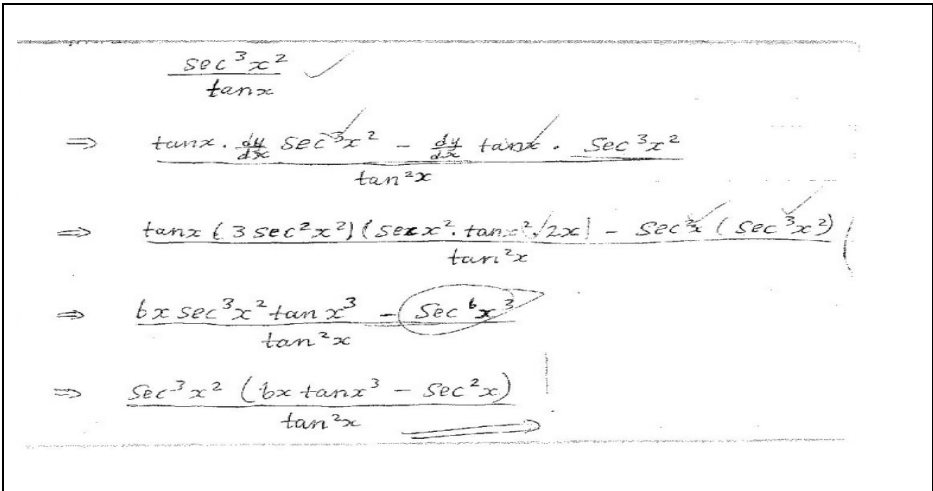 sec³x² / tanx
⇒ (tanx . dy/dx sec³x² - dy/dx tanx . sec³x²) / tan²x
⇒ (tanx (3 sec²x²)(secx² . tanx² . 2x) - sec²x (sec³x²)) / tan²x
⇒ (6x sec³x² tan x³ - sec⁶x³) / tan²x
⇒ sec³x² (6x tanx³ - sec²x) / tan²x